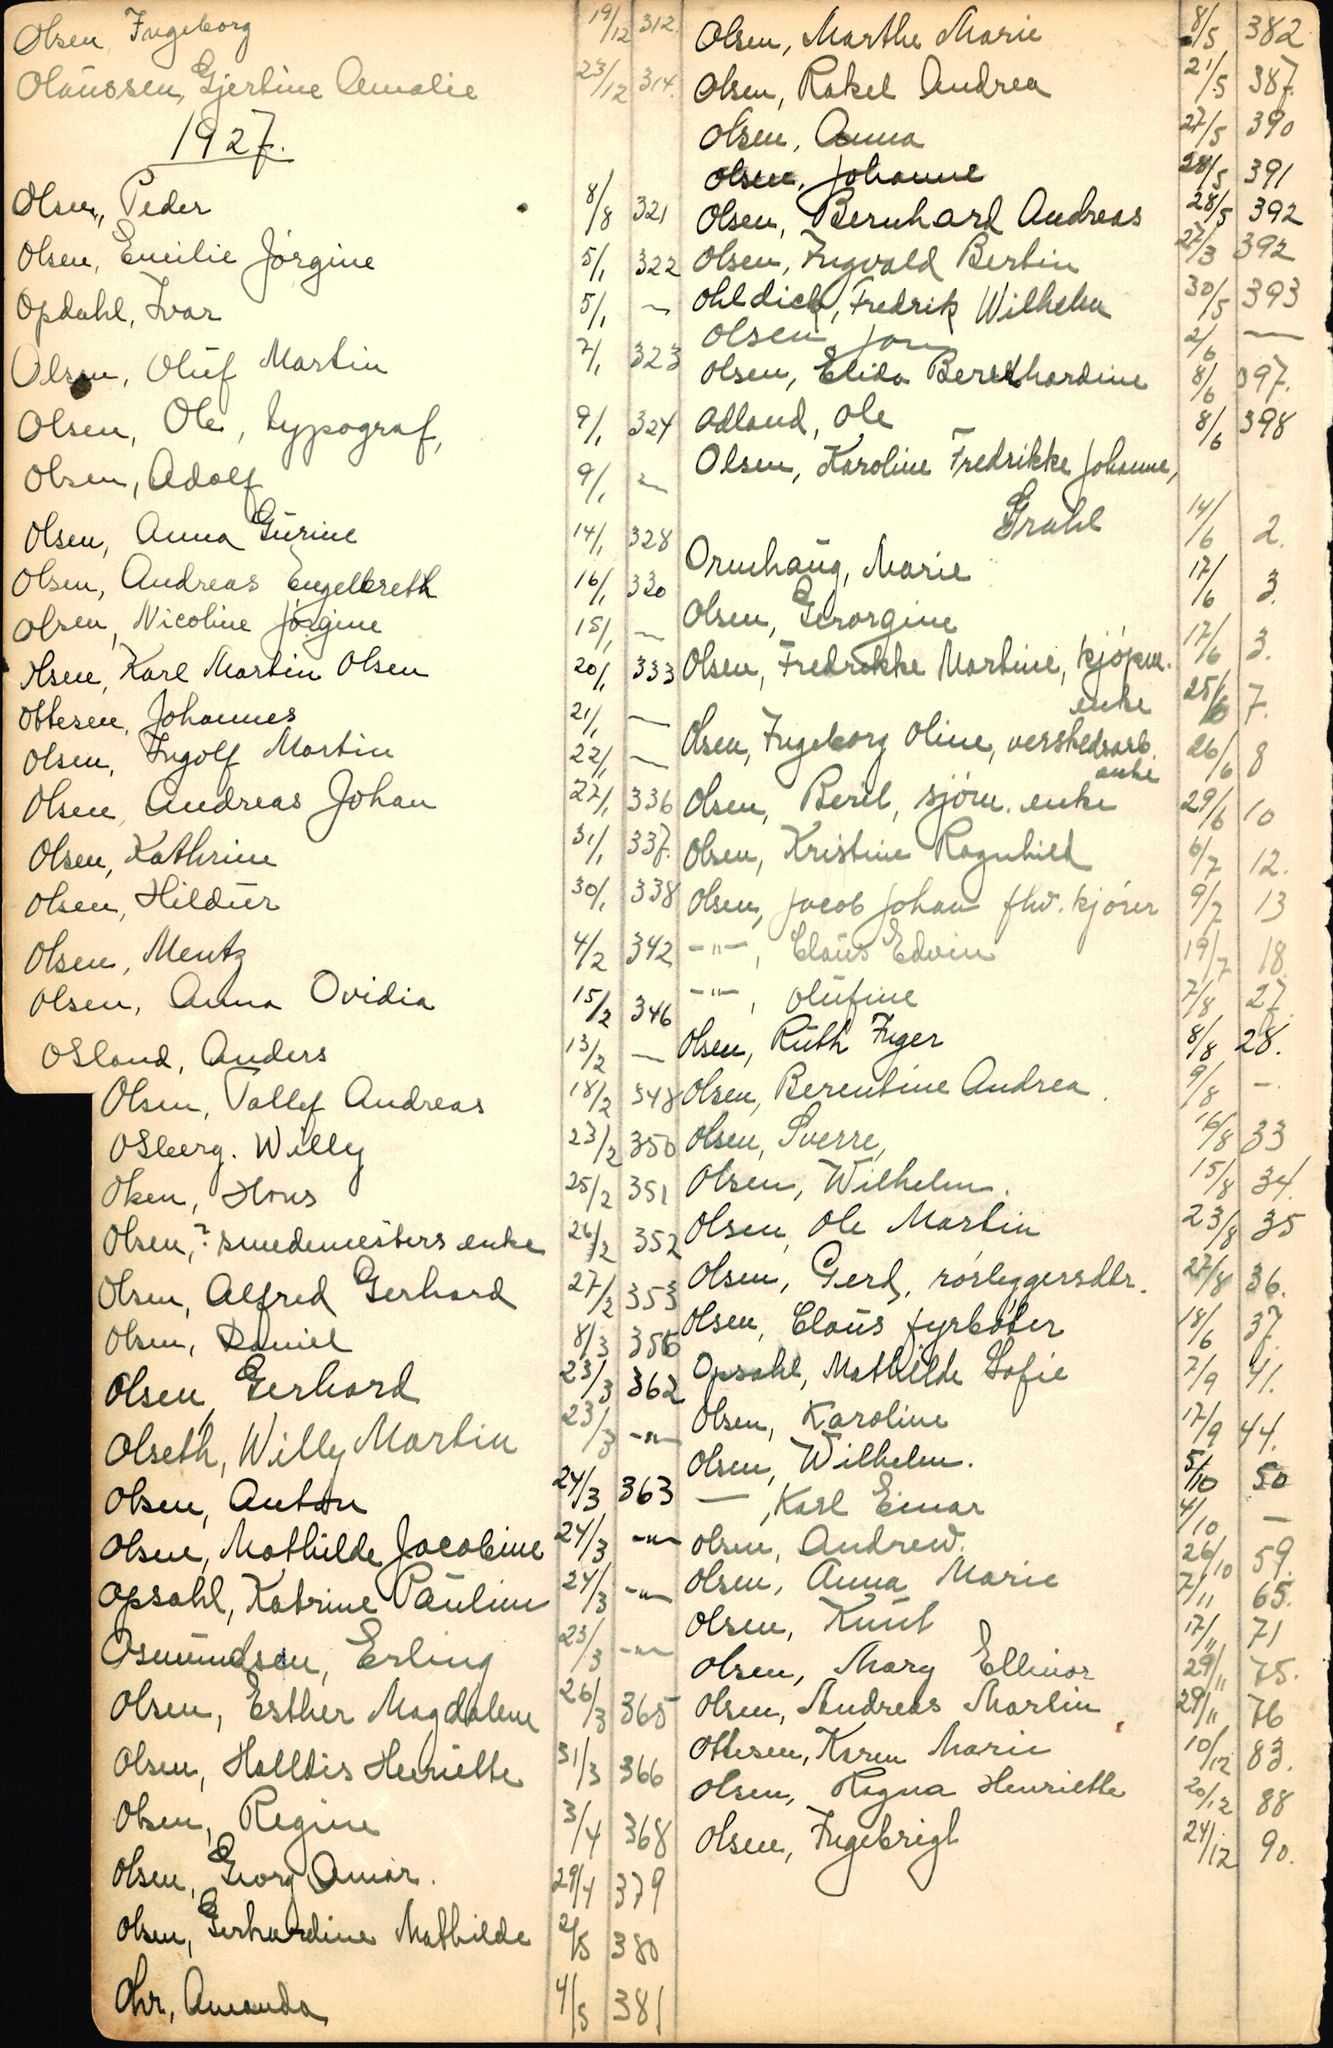 Olsen, Ingeborg 19/12 312.
Olaussen, Gjertine Amalie 23/12 314.
1927.
Olsen, Peder 8/8 321
Olsen, Emilie Jörgine 5/1 322
Opdahl, Ivar 5/1 —
Olsen, Oluf Martin 7/1 323
Olsen, Ole, typograf, 9/1 324
Olsen, Adolf 9/1 —
Olsen, Anna Gurine 14/1 328
Olsen, Andreas Engelbreth 16/1 330
Olsen, Nicoline Jörgine 15/1 —
Olsen, Karl Martin Olsen 20/1 333
Ottesen, Johannes 21/1 —
Olsen, Ingolf Martin 22/1 —
Olsen, Andreas Johan 27/1 336
Olsen, Kathrine 31/1 337.
Olsen, Hildur 30/1 338
Olsen, Mentz 4/2 342
Olsen, Anna Ovidia 15/2 346
Osland, Anders 13/2 —
Olsen, Tallef Andreas 18/2 348
Osberg. Willy 23/2 350
Olsen, Hans 25/2 351
Olsen, ? smedemesters enke 26/2 352
Olsen, Alfred Gerhard 27/2 353
Olsen, Daniel 8/3 356
Olsen, Gerhard 23/3 362
Olseth, Willy Martin 23/3 -"-
Olsen, Anton 24/3 363
Olsen, Mathilde Jacobine 24/3 -"-
Opsahl, Katrine Pauline 24/3 -"-
Osmundsen, Erling 23/3 -"-
Olsen, Esther Magdalene 26/3 365
Olsen, Halldis Henriette 31/3 366
Olsen, Regine 3/4 368
Olsen, Georg Omar. 29/4 379
Olsen, Gerhardine Mathilde 2/5 380
Ohr, Amanda 4/5 381
Olsen, Marthe Marie 8/5 382
Olsen, Rakel Andrea 21/5 387.
Olsen, Anna 27/5 390
Olsen, Johanne 28/5 391
Olsen, Bernhard Andreas 28/5 392
Olsen, Ingvald Bertin 27/3 392
Ohldick, Fredrik Wilhelm 30/5 393
Olsen, Jon 2/6 —
Olsen, Elida Bernhardine 8/6 397.
Odland, Ole 8/6 398
Olsen, Karoline Fredrikke Johanne,
Grahl 14/6 2.
Ormhaug, Marie 17/6 3.
Olsen, Gerorgine 17/6 3.
Olsen, Fredrikke Martine, kjöpm.
enke 25/6 7.
Olsen, Ingeborg Oline, verkstedsarb.
enke 26/6 8
Olsen, Beril, sjöm. enke 29/6 10
Olsen, Kristine Ragnhild 6/7 12.
Olsen, Jacob Johan fhv. kjörer 9/7 13
-"-, Claus Edvin 19/7 18.
-"-, Olufine 7/8 27.
Olsen, Ruth Inger 8/8 28.
Olsen, Berentine Andrea. 9/8 -
Olsen, Sverre, 16/8 33
Olsen, Wilhelm. 15/8 34.
Olsen, Ole Martin 23/8 35
Olsen, Gerd, rörleggersdtr. 27/8 36.
Olsen, Claus fyrböter 18/6 37.
Opsahl, Mathilde Sofie 7/9 41.
Olsen, Karoline 17/9 44.
Olsen, Wilhelm. 5/10 50
—, Karl Einar 4/10 —
Olsen, Andrew. 26/10 59.
Olsen, Anna Marie 7/11 65.
Olsen, Knut 17/11 71
Olsen, Mary Ellinor 29/11 75.
Olsen, Andreas Martin 29/11 76
Ottesen, Karen Marie 10/12 83.
Olsen, Ragna Henriette 20/12 88
Olsen, Ingebrigt 24/12 90.